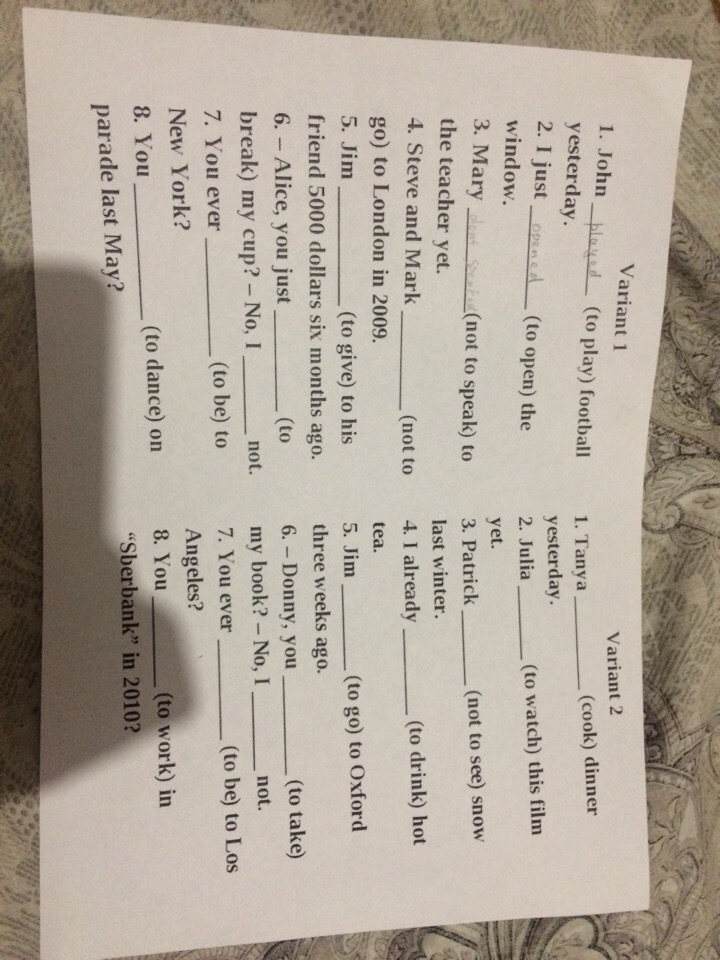 Variant 1
1. John played (to play) football
yesterday.
2. I just opened (to open) the
window.
3. Mary dont (not to speak) to
the teacher yet.
4. Steve and Mark ________ (not to
go) to London in 2009.
5. Jim ________ (to give) to his
friend 5000 dollars six months ago.
6. – Alice, you just ________ (to
break) my cup? – No, I ________ not.
7. You ever ________ (to be) to
New York?
8. You ________ (to dance) on
parade last May?
Variant 2
1. Tanya ________ (cook) dinner
yesterday.
2. Julia ________ (to watch) this film
yet.
3. Patrick ________ (not to see) snow
last winter.
4. I already ________ (to drink) hot
tea.
5. Jim ________ (to go) to Oxford
three weeks ago.
6. – Donny, you ________ (to take)
my book? – No, I ________ not.
7. You ever ________ (to be) to Los
Angeles?
8. You ________ (to work) in
“Sberbank” in 2010?